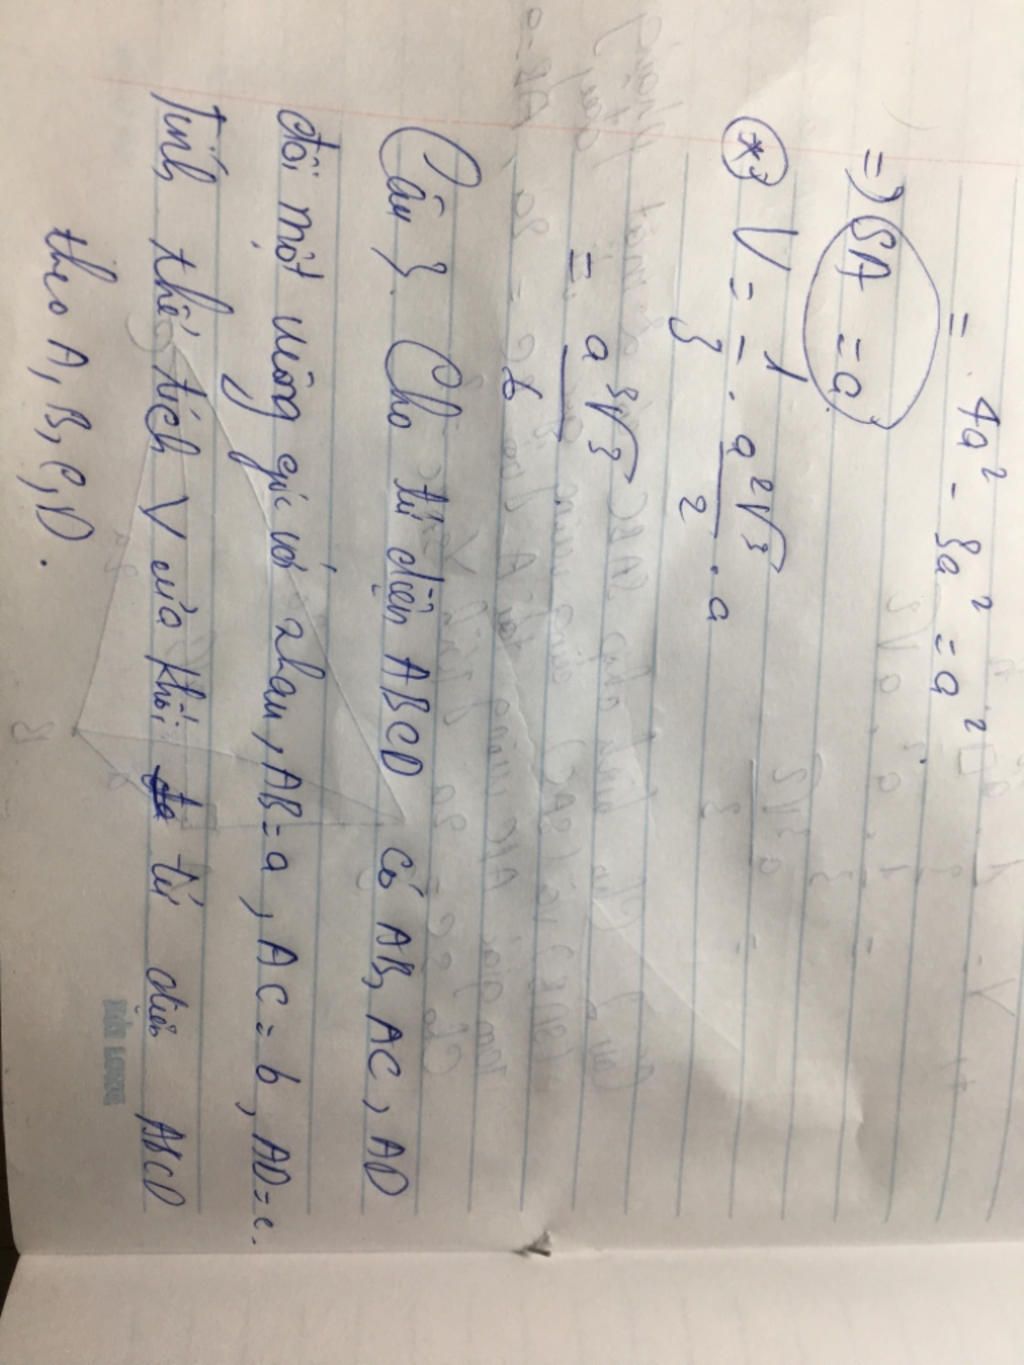 = 4a² - 3a² = a²
=> SA = a
* V = 1/3 . a²√3/2 . a
= a³√3/6
Câu 3. Cho tứ diện ABCD có AB, AC, AD
đôi một vuông góc với nhau, AB = a, AC = b, AD = c.
Tính thể tích V của khối tứ diện ABCD
theo A, B, C, D.